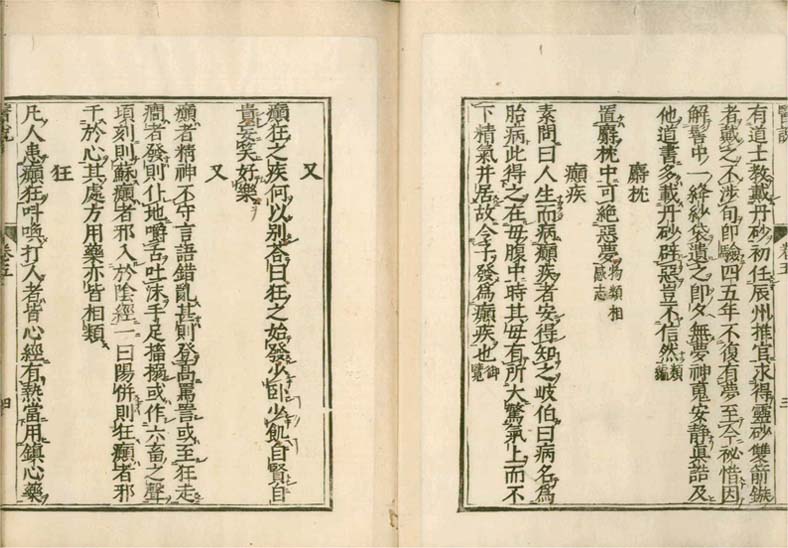 醫說 卷五 三
有道士教戴丹砂初任辰州推官求得靈砂雙箭鏃
者戴之不涉旬即驗四五年不復有夢至今祕惜因
解髻中一絳紗袋遺之即夕無夢神䰟安静真誥及
他道書多載丹砂辟惡豈不信然類編
麝枕
置麝枕中可絶惡夢物類相感志
癲疾
素問曰人生而病癲疾者安得知之岐伯曰病名爲
胎病此得之在母腹中時其母有所大驚氣上而不
下精氣并居故令子發爲癲疾也御覽
又
癲狂之疾何以别荅曰狂之始發少卧少飢自賢自
貴妄笑好樂
又
癲者精神不守言語錯亂甚則登高罵詈或至狂走
癎者發則仆地嚼舌吐沫手足搐搦或作六畜之聲
頃刻則蘇癲者邪入於陰經一曰陽併則狂癲者邪
干於心其處方用藥亦皆相類
狂
凡人患癲狂叫喚打人者皆心經有熱當用鎮心藥
醫說 卷五 四